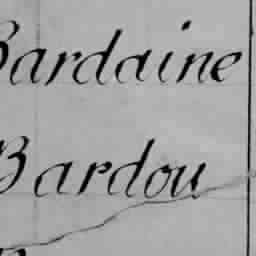 Bardaine
Bardou